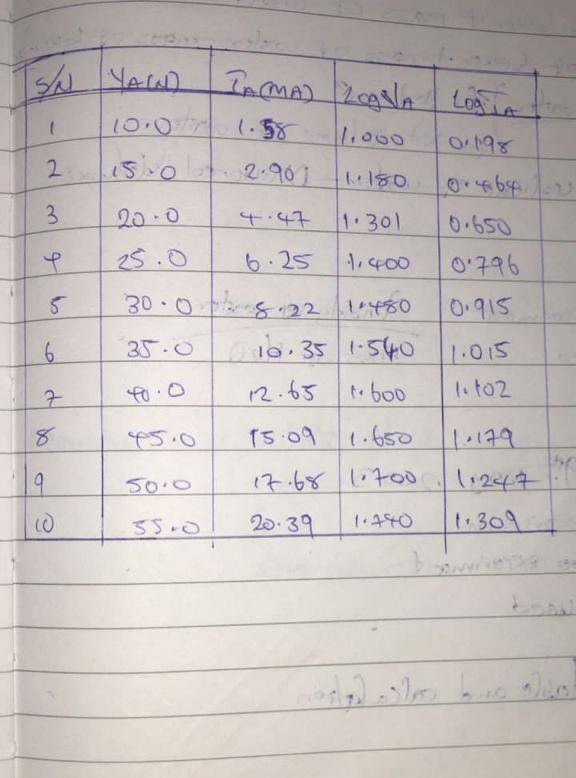 S/N VA(V) IA(MA) LogVA LogIA
1 10.0 1.58 1.000 0.198
2 15.0 2.90 1.180 0.464
3 20.0 4.47 1.301 0.650
4 25.0 6.25 1.400 0.796
5 30.0 8.22 1.480 0.915
6 35.0 10.35 1.540 1.015
7 40.0 12.65 1.600 1.102
8 45.0 15.09 1.650 1.179
9 50.0 17.68 1.700 1.247
10 55.0 20.39 1.740 1.309